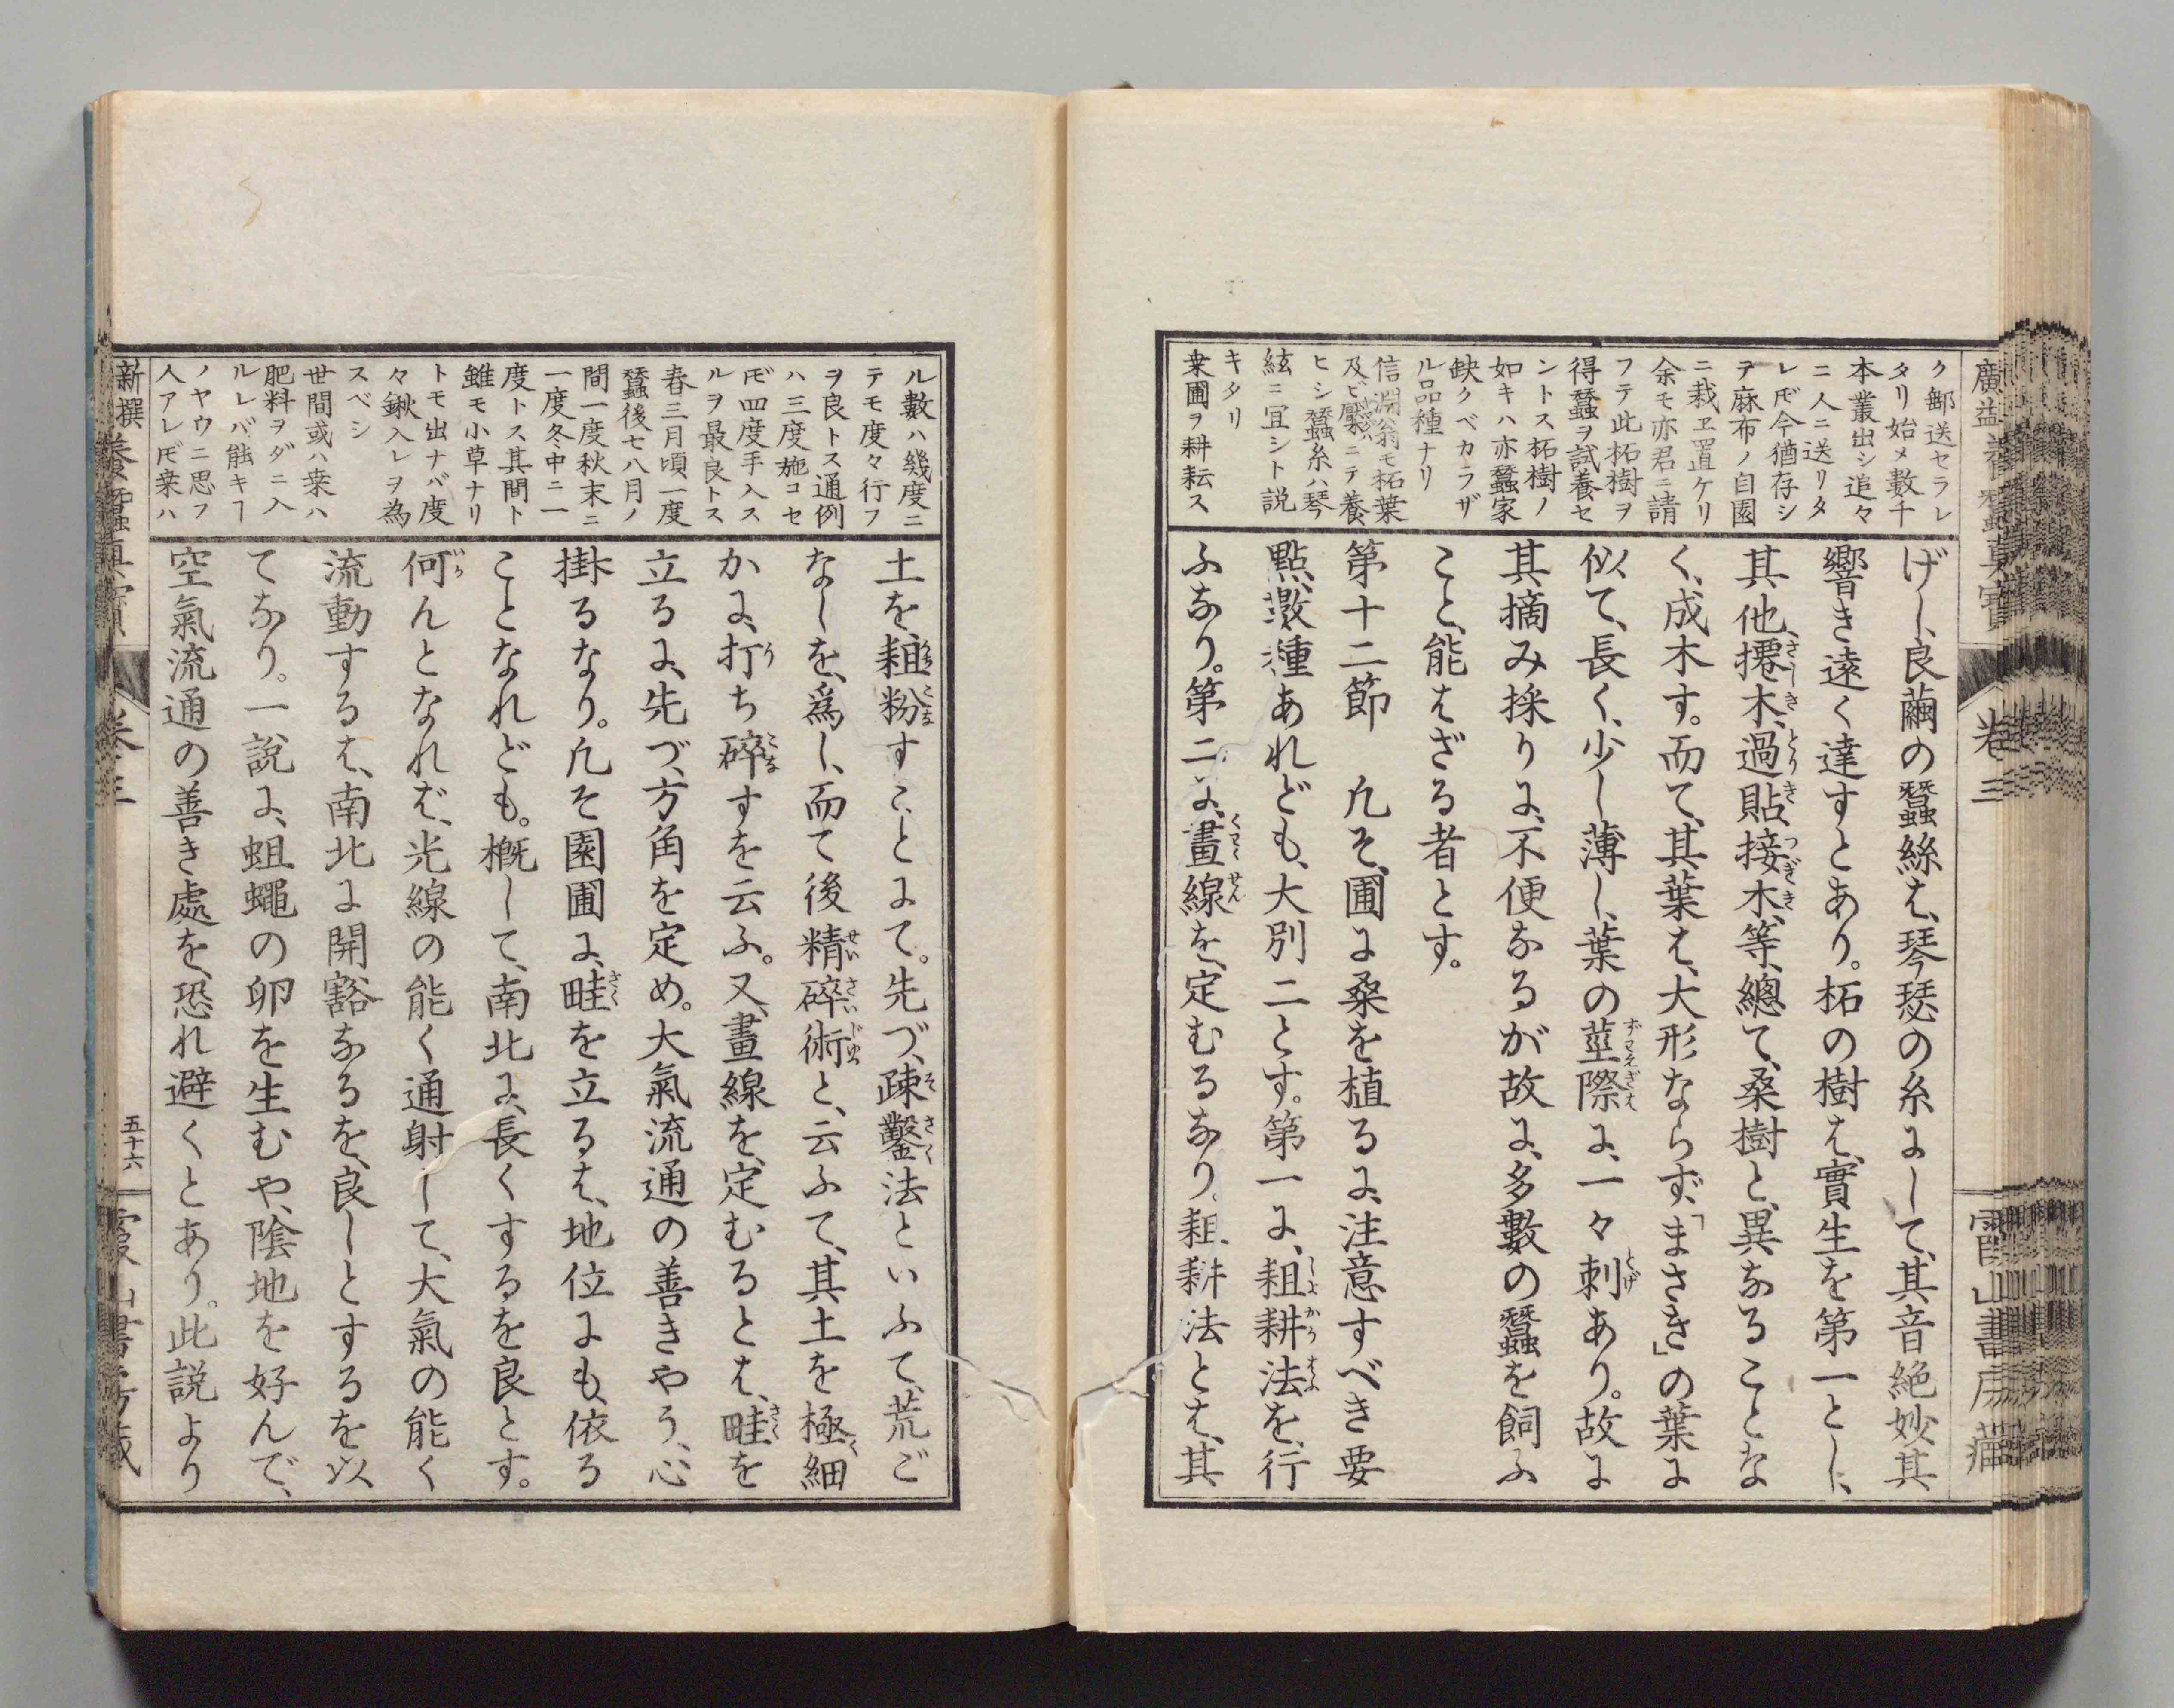 廣益養蠶真寶
卷三
霞山書房藏
ク郵送セラレ
タリ始メ數千
本叢出シ追々
ニ人ニ送リタ
レ𪜈今猶存シ
テ麻布ノ自園
ニ栽ヱ置ケリ
余モ亦君ニ請
フテ此柘樹ヲ
得蠶ヲ試養セ
ントス柘樹ノ
如キハ亦蠶家
缺クベカラザ
ル品種ナリ
信淵翁モ柘葉
及ビ檿ニテ養
ヒシ蠶糸ハ琴
絃ニ宜シト説
キタリ
桒圃ヲ耕耘ス
げし、良繭の蠶絲は、琴瑟の糸にして、其音絶妙其
響き遠く達すとあり。柘の樹は、實生を第一とし、
其他、攇木、過貼、接木、等、總て、桑樹と、異なることな
く、成木す。而て、其葉は、大形ならず、「まさき」の葉に
似て、長く、少し薄し、葉の莖際に、一々刺あり。故に
其摘み採りに、不便なるが故に、多數の蠶を飼ふ
こと、能はざる者とす。
第十二節　凡そ、圃に桑を植るに、注意すべき要
點、數種あれども、大別二とす。第一に、耡耕法を、行
ふなり。第二に、畫線を、定むるなり。耡耕法とは、其
ル數ハ幾度ニ
テモ度々行フ
ヲ良トス通例
ハ三度施コセ
𪜈四度手入ス
ルヲ最良トス
春三月頃一度
蠶後七八月ノ
間一度秋末ニ
一度冬中ニ一
度トス其間ト
雖モ小草ナリ
トモ出ナバ度
々鍬入レヲ為
スベシ
世間或ハ桒ハ
肥料ヲダニ入
ルレバ能キヿ
ノヤウニ思フ
人アレ𪜈桒ハ
土を耡粉すことにて。先づ、疎鑿法といふて、荒ご
なしを、爲し、而て後精碎術と、云ふて、其土を極細
かに、打ち碎すを云ふ。又、畫線を、定むるとは、畦を
立るに、先づ、方角を定め。大氣流通の善きやう、心
掛るなり。凡そ園圃に、畦を立るは、地位にも、依る
ことなれども。概して、南北に、長くするを良とす。
何んとなれば、光線の能く通射して、大氣の能く
流動するは、南北に開豁なるを、良しとするを以
てなり。一説に、蛆蠅の卵を生むや、陰地を好んで、
空氣流通の善き處を、恐れ避くとあり。此説より
新撰養蠶真寶
卷三
五十六
霞山書房藏